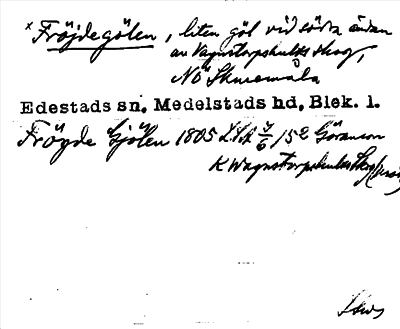 × Fröjdegölen, liten göl vid södra ändan
av Vagnstorpshults skog,
NÖ Skuremåla
Edestads sn, Medelstads hd, Blek. l.
Fröyde Gjölen 1805 LSA 7/6 152 Göranson
K Wagnstorpshults Skog